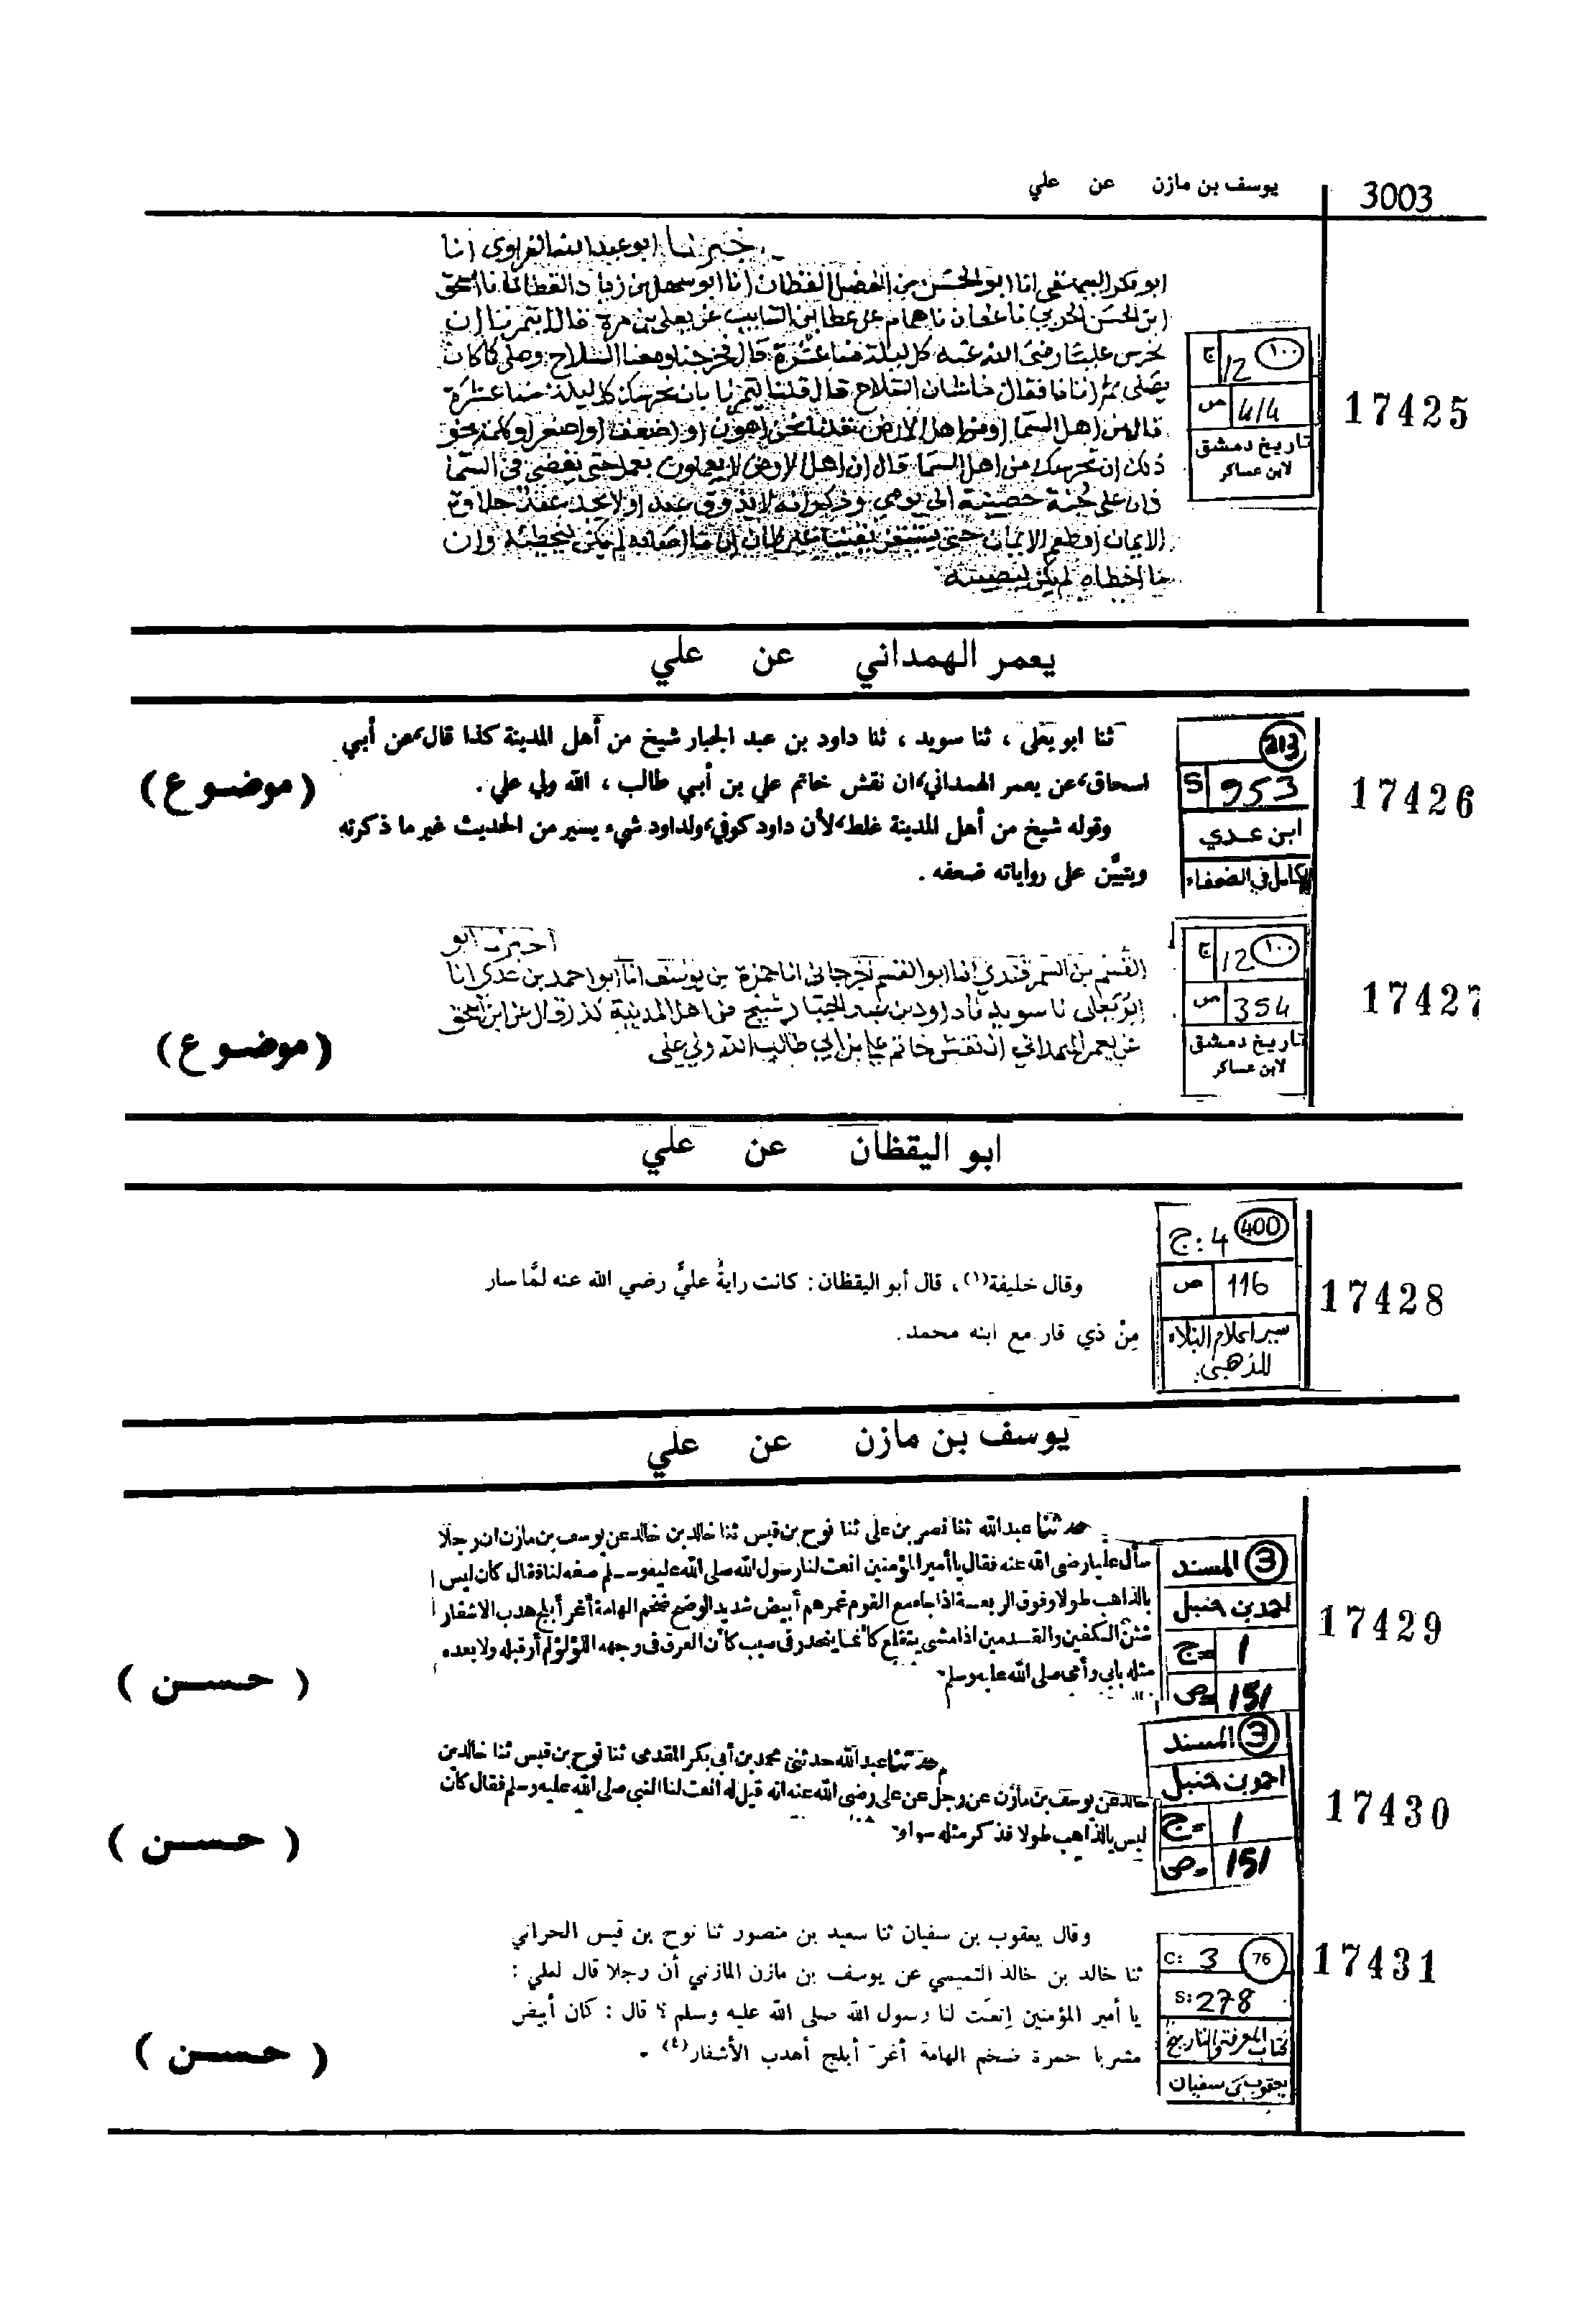 3003
يوسف بن مازن عن علي
17425
١٠٠ ج 12
ص 414
تاريخ دمشق
لابن عساكر
خبرنا ابو عبد الله الفراوي انا
ابو بكر البيهقي انا ابو الحسن بن الفضل القطان انا ابو سهل بن زياد القطان نا اسحق
ابن الحسن الحربي نا عفان نا همام عن عطا بن السايب عن يعلى بن مرة قال ايتمرنا ان
نحرس عليا رضي الله عنه كل ليلة منا عشرة قال فخرجنا ومعنا السلاح وصلى كما كان
يصلي ثم اتانا فقال ما شان السلاح قال قلنا ايتمرنا بان نحرسك كل ليلة منا عشرة
قال من اهل السما او من اهل الارض قلنا نحن اهون او اضعف او اصغر او كلمة نحو
ذلك ان نحرسك من اهل السما قال ان اهل الارض لا يعملون بعمل حتى يقضى في السما
وان علي جنة حصينة الى يومي وذكر انه لا يذوق عبد او لا يجد عبد حلاوة
الايمان او طعم الايمان حتى يستيقن يقينا غير ظان ان ما اصابه لم يكن ليخطئه وان
ما اخطاه لم يكن ليصيبه
يعمر الهمداني عن علي
17426
213
S 953
ابن عدي
الكامل في الضعفاء
ثنا ابو يعلى ، ثنا سويد ، ثنا داود بن عبد الجبار شيخ من أهل المدينة كذا قال، عن أبي
اسحاق، عن يعمر الهمداني، ان نقش خاتم علي بن أبي طالب ، الله ولي علي .
وقوله شيخ من أهل المدينة غلط، لأن داود كوفي، ولداود شيء يسير من الحديث غير ما ذكرته
ويتبيَّن على رواياته ضعفه .
(موضوع)
17427
١٠٠ ج 12
ص 354
تاريخ دمشق
لابن عساكر
اخبرنا ابو
القسم بن السمرقندي انا ابو القسم الجرجاني انا حمزة بن يوسف انا ابو احمد بن عدي انا
ابو يعلى نا سويد نا داود بن عبد الجبار شيخ من اهل المدينة كذا قال عن ابن اسحق
عن يعمر الهمداني ان نقش خاتم علي بن ابي طالب الله ولي علي
(موضوع)
ابو اليقظان عن علي
17428
400 ج: 4
ص 116
سير اعلام النبلاء
للذهبي
وقال خليفة(١)، قال أبو اليقظان: كانت رايةُ عليٍّ رضي الله عنه لمَّا سار
مِنْ ذي قار مع ابنه محمد.
يوسف بن مازن عن علي
17429
3 المسند
احمد بن حنبل
ج= 1
ص= 151
حدثنا عبدالله ثنا نصر بن على ثنا نوح بن قيس ثنا خالد بن خالد عن يوسف بن مازن ان رجلا
سأل عليا رضى الله عنه فقال يا أمير المؤمنين انعت لنا رسول الله صلى الله عليه وسلم صفه لنا فقال كان ليس
بالذاهب طولا وفوق الربعة اذا جاء مع القوم غمرهم أبيض شديد الوضح ضخم الهامة أغر أبلج هدب الاشفار
شثن الكفين والقدمين اذا مشى يتقلع كأنما ينحدر فى صبب كأن العرق فى وجهه اللؤلؤ لم أر قبله ولا بعده
مثله بأبي وأمى صلى الله عليه وسلم
( حسن )
17430
3 المسند
احمد بن حنبل
ج= 1
ص= 151
حدثنا عبدالله حدثنى محمد بن أبى بكر المقدمى ثنا نوح بن قيس ثنا خالد بن
خالد عن يوسف بن مازن عن رجل عن على رضى الله عنه انه قيل له انعت لنا النبى صلى الله عليه وسلم فقال كان
ليس بالذاهب طولا فذكر مثله سواء
( حسن )
17431
C: 3 76
S: 278
كتاب المعرفة والتاريخ
يعقوب بن سفيان
وقال يعقوب بن سفيان ثنا سعيد بن منصور ثنا نوح بن قيس الحراني
ثنا خالد بن خالد التميمي عن يوسف بن مازن المازني أن رجلا قال لعلي :
يا أمير المؤمنين اِنعَت لنا رسول الله صلى الله عليه وسلم ؟ قال : كان أبيض
مشربا حمرة ضخم الهامة أغرّ أبلج أهدب الأشفار(٤) .
( حسن )